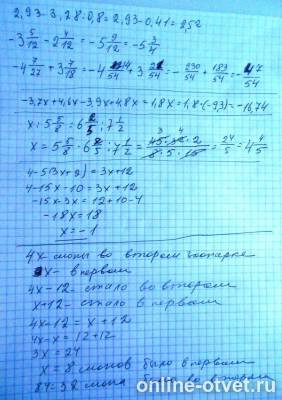 2,93-3,28:0,8=2,93-0,41=2,52
-3 5/12 - 2 4/12 = -5 9/12 = -5 3/4
-4 7/27 + 3 7/18 = -4 14/54 + 3 21/54 = -230/54 + 183/54 = -47/54
-3,7x+4,6x-3,9x+4,8x=1,8x=1,8·(-9,3)=-16,74
x:5 5/8=6 2/5:7 1/2
x=5 5/8·6 2/5:7 1/2= = 24/5 = 4 4/5
4-5(3x+2)=3x+12
4-15x-10=3x+12
-15x-3x=12+10-4
-18x=18
x=-1
4x-слоны во втором зоопарке
x-в первом
4x-12-стало во втором
x+12-стало в первом
4x-12=x+12
4x-x=12+12
3x=24
x=8 слонов было в первом
8·4=32 слона было во втором
online-otvet.ru